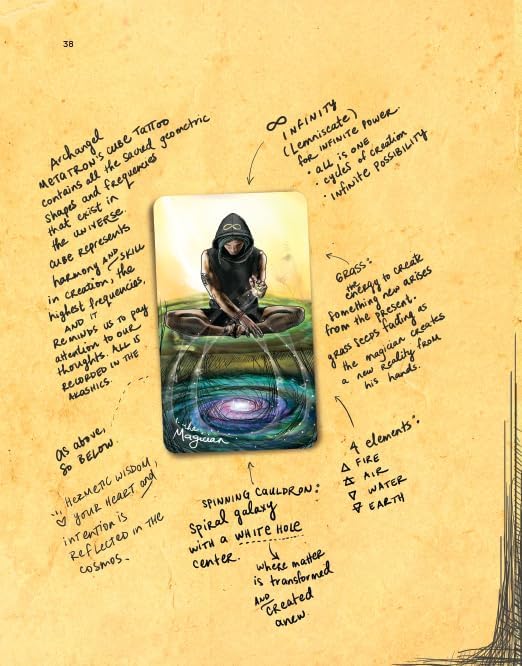 38
Archangel
METATRON'S CUBE TATTOO
contains all the sacred geometric
shapes and frequencies
that exist in
the UNIVERSE.
CUBE represents
harmony AND SKILL
in creation, the
highest frequencies,
AND IT
REMINDS US TO pay
attention to our
thoughts. ALL IS
RECORDED IN THE
AKASHICS.
∞ INFINITY
(Lemniscate)
FOR INFINITE POWER.
• ALL IS ONE
• cycles of creation
• INFINITE POSSIBILITY
GRASS:
the energy to create
something new arises
from the present.
grass seeds fading as
the magician creates
a new reality from
his hands.
the
Magician
AS above,
SO BELOW.
HERMETIC WISDOM,
YOUR HEART and
intention is
REFLECTED IN THE
COSMOS.
4 elements:
🜂 FIRE
🜁 AIR
🜄 WATER
🜃 EARTH
SPINNING CAULDRON:
Spiral galaxy
WITH a WHITE HOLE
center.
where matter
is transformed
AND created
anew.